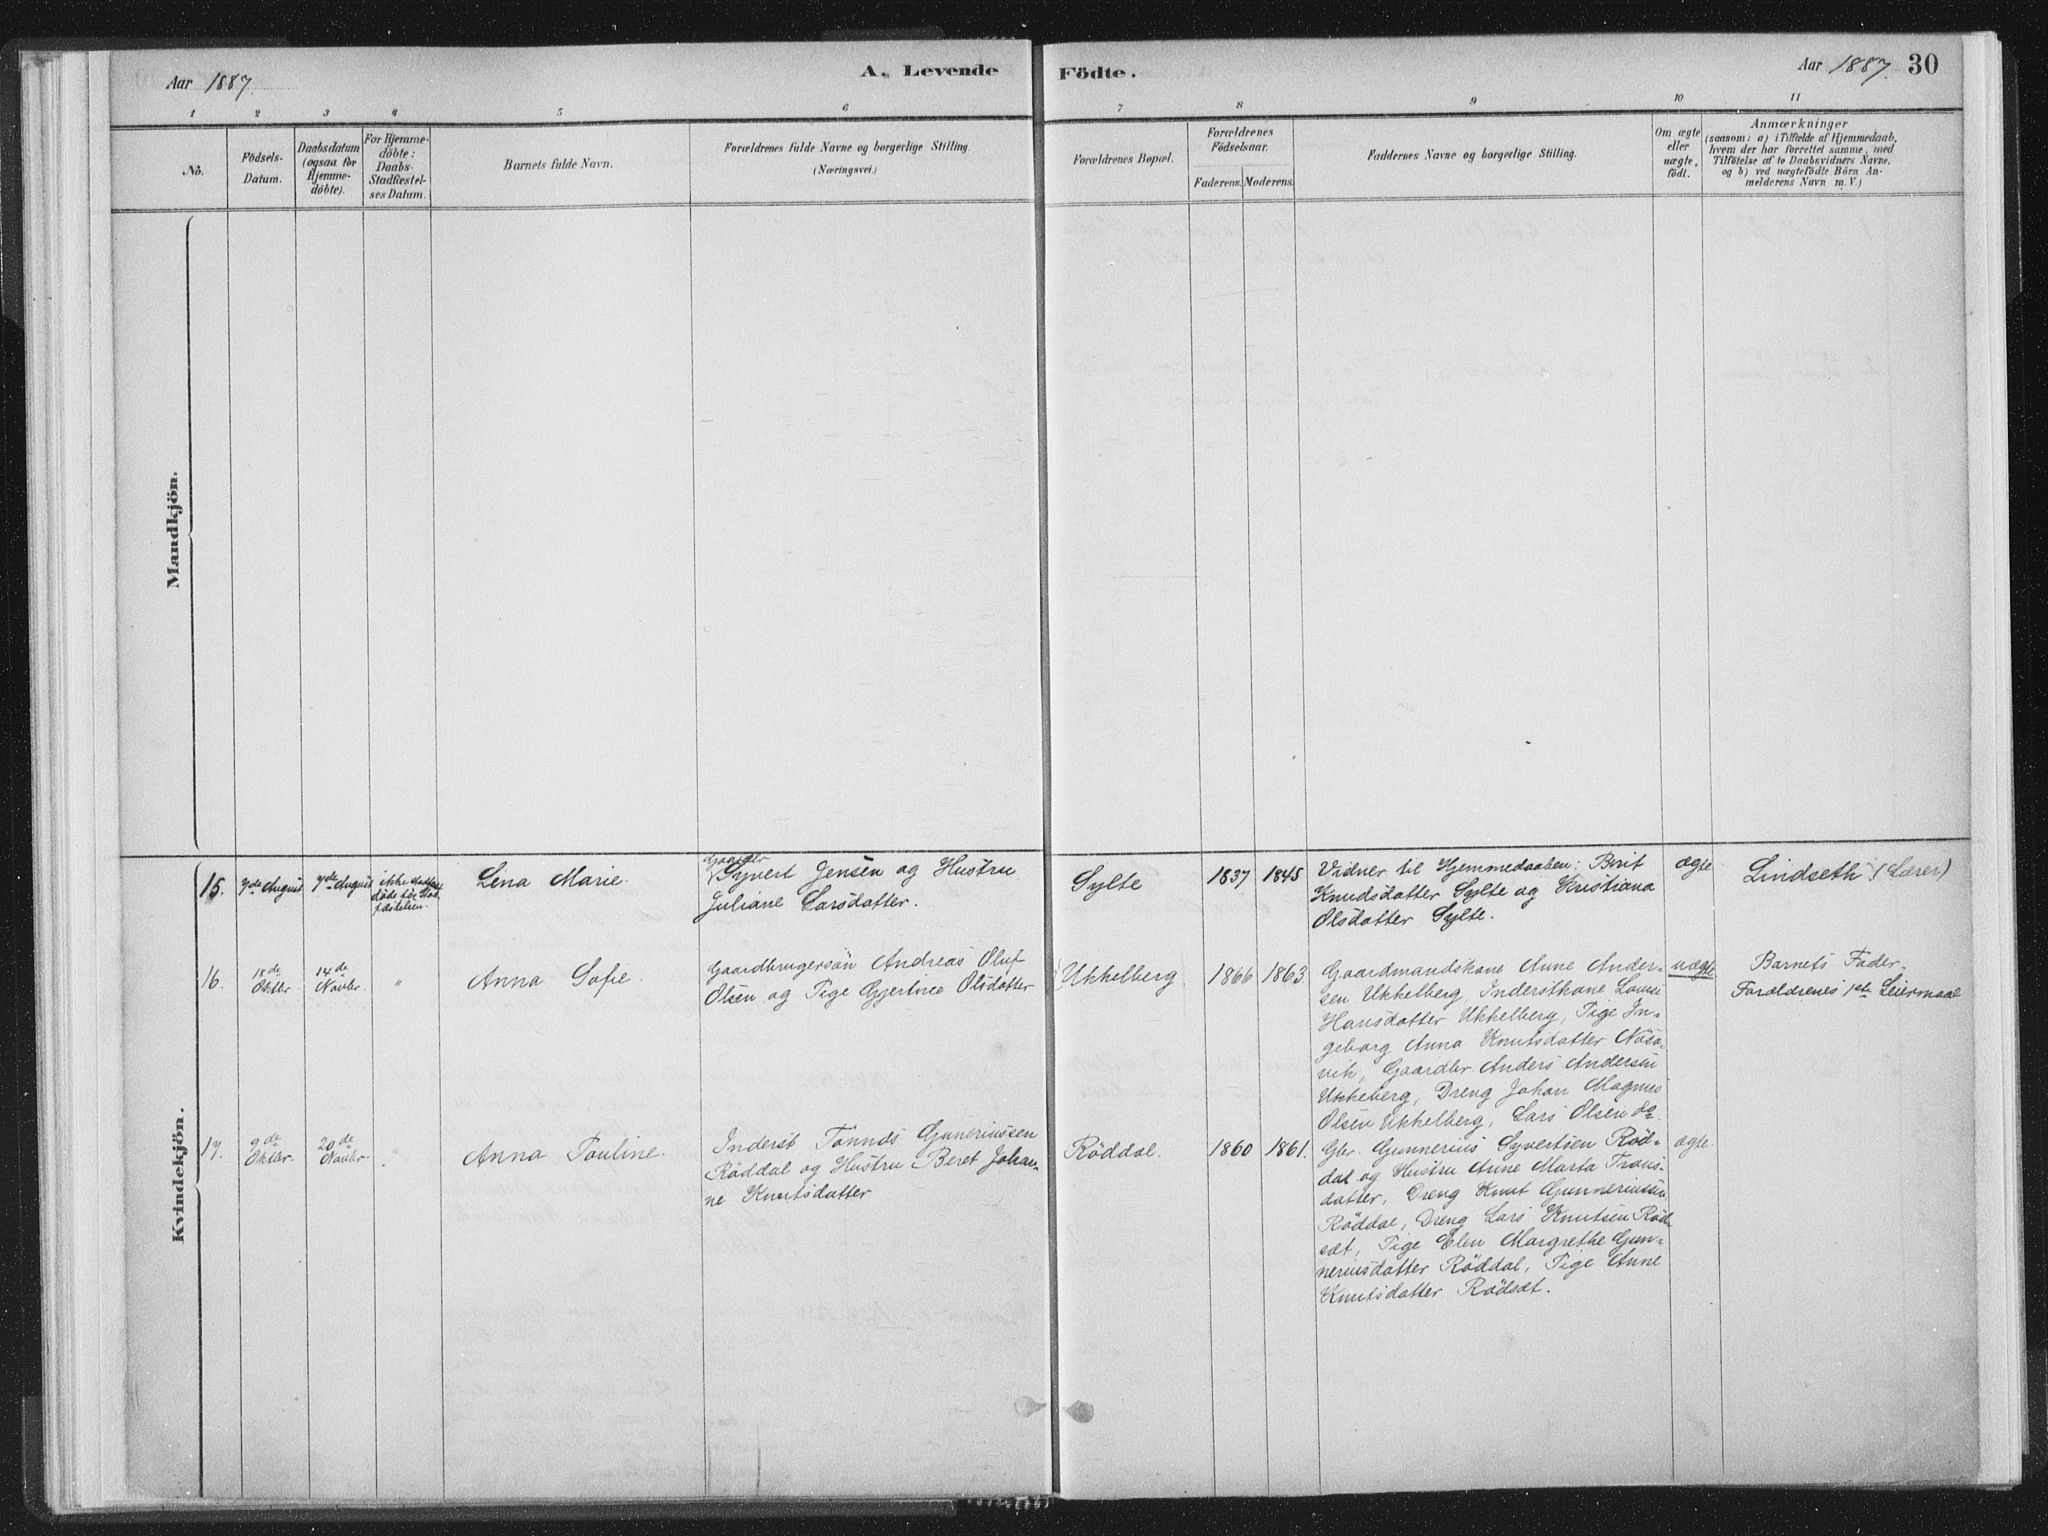 Aar 1887.
A. Levende
Födte.
Aar 1887.
30
1 2 3 4 5 6 7 8 9 10 11
No.
Födsels-
Datum.
Daabsdatum
(ogsaa for
Hjemme-
döbte).
For Hjemme-
döbte:
Daabs-
Stadfæstel-
ses Datum.
Barnets fulde Navn.
Forældrenes fulde Navne og borgerlige Stilling.
(Næringsvei.)
Forældrenes Bopæl.
Forældrenes
Födselsaar.
Faderens.
Moderens.
Faddernes Navne og borgerlige Stilling.
Om ægte
eller
uægte
födt.
Anmærkninger
(saasom: a) i Tilfælde af Hjemmedaab,
hvem der har forrettet samme, med
Tilföielse af to Daabsvidners Navne,
og b) ved uægtefödte Börn An-
melderens Navn m. V.)
Mandkjön.
Kvindekjön.
15.
7de August
7de August
ikke
döde för
fæstelsen.
Lena Marie.
Gaardbr
Syvert Jensen og Hustru
Juliane Larsdatter.
Sylte
1837
1845
Vidner til Hjemmedaaben: Berit
Knudsdatter Sylte og Kristiana
Olsdatter Sylte.
ægte
Lindseth (Lærer)
16.
18de
Oktbr.
14de
Novbr.
"
Anna Sofie.
Gaardbrugersön Andreas Oluf
Olsen og Pige Gjertine Olsdatter
Ukkelberg.
1866
1863.
Gaardmandskone Anne Ander-
sen Ukkelberg, Inderstkone
Hansdatter Ukkelberg, Pige In-
geborg Anna Knutsdatter Naso-
vik, Gaardbr Anders Andersen
Ukkeberg, Dreng Johan Magnus
Olsen Ukkelberg, Lars Olsen do
uægte
Barnets Fader.
Forældrenes 1ste Leiermaal
17.
9de
Oktbr.
20de
Novbr.
"
Anna Pouline.
Inderst Tönnds Gunneriussen
Röddal og Hustru Beret Johan-
ne Knutsdatter
Röddal.
1860
1861.
Gbr. Gunnerius Syvertsen Röd-
dal og Hustru Anne Marta Trons-
datter, Dreng Knut Gunneriussen
Röddal, Dreng Lars Knutsen Röd-
sæt, Pige Elen Margrethe Gun-
neriusdatter Röddal, Pige Anne
Knutsdatter Rödsæt.
ægte.